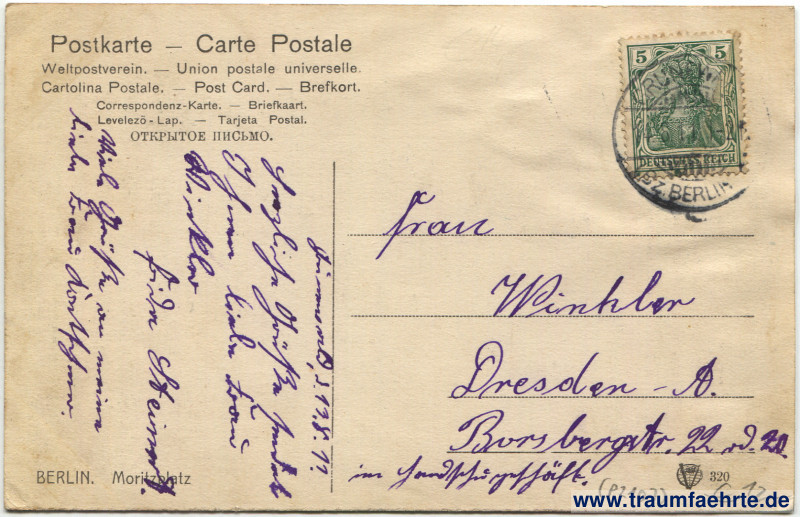 Postkarte — Carte Postale
Weltpostverein. — Union postale universelle.
Cartolina Postale. — Post Card. — Brefkort.
Correspondenz-Karte. — Briefkaart.
Levelező-Lap. — Tarjeta Postal.
ОТКРЫТОЕ ПИСЬМО.
5 5
DEUTSCHES REICH
BZ. BERLIN
d. 17.8.12
Herzliche Grüße sendet
Ihnen liebe Frau
Winkler
Frida
Viele Grüße an meine
liebe Frau
Frau
Winkler
Dresden-A.
Borsbergstr. 22 od. 20
im Handschuhgeschäft.
BERLIN. Moritzplatz
320
www.traumfaehrte.de